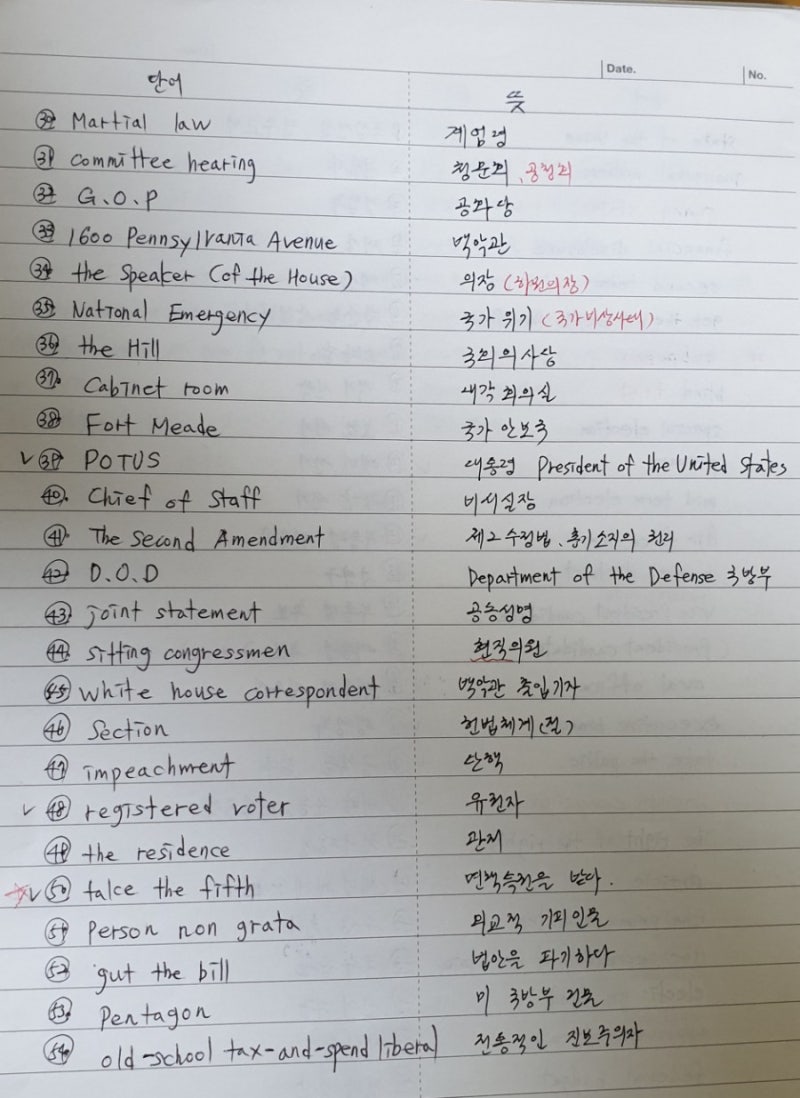 Date.
No.
단어 뜻
㉚ Martial law 계엄령
㉛ committee hearing 청문회、공청회
㉜ G.O.P 공화당
㉝ 1600 Pennsylvania Avenue 백악관
㉞ the Speaker (of the House) 의장 (하원의장)
㉟ National Emergency 국가 위기 (국가비상사태)
㊱ the Hill 국회의사당
㊲ Cabinet room 내각 회의실
㊳ Fort Meade 국가 안보국
✓ ㊴ POTUS 대통령 President of the United States
㊵ Chief of Staff 비서실장
㊶ The Second Amendment 제2수정법、총기소지의 권리
㊷ D.O.D Department of the Defense 국방부
㊸ joint statement 공동성명
㊹ sitting congressmen 현직의원
㊺ white house correspondent 백악관 출입기자
㊻ Section 헌법체계(절)
㊼ impeachment 탄핵
✓ ㊽ registered voter 유권자
㊾ the residence 관저
☆✓ ㊿ take the fifth 면책특권을 받다.
51 Person non grata 외교적 기피인물
52 gut the bill 법안을 파기하다
53 Pentagon 미 국방부 건물
54 old-school tax-and-spend liberal 전통적인 진보주의자